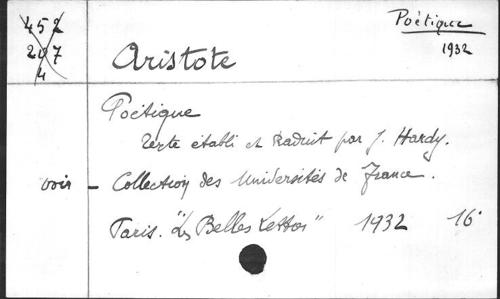 452
207
4
Poétique
1932
Aristote
Poétique
Texte établi et traduit par J. Hardy.
voir - Collection des Universités de France.
Paris. "Les Belles Lettres" 1932 16°